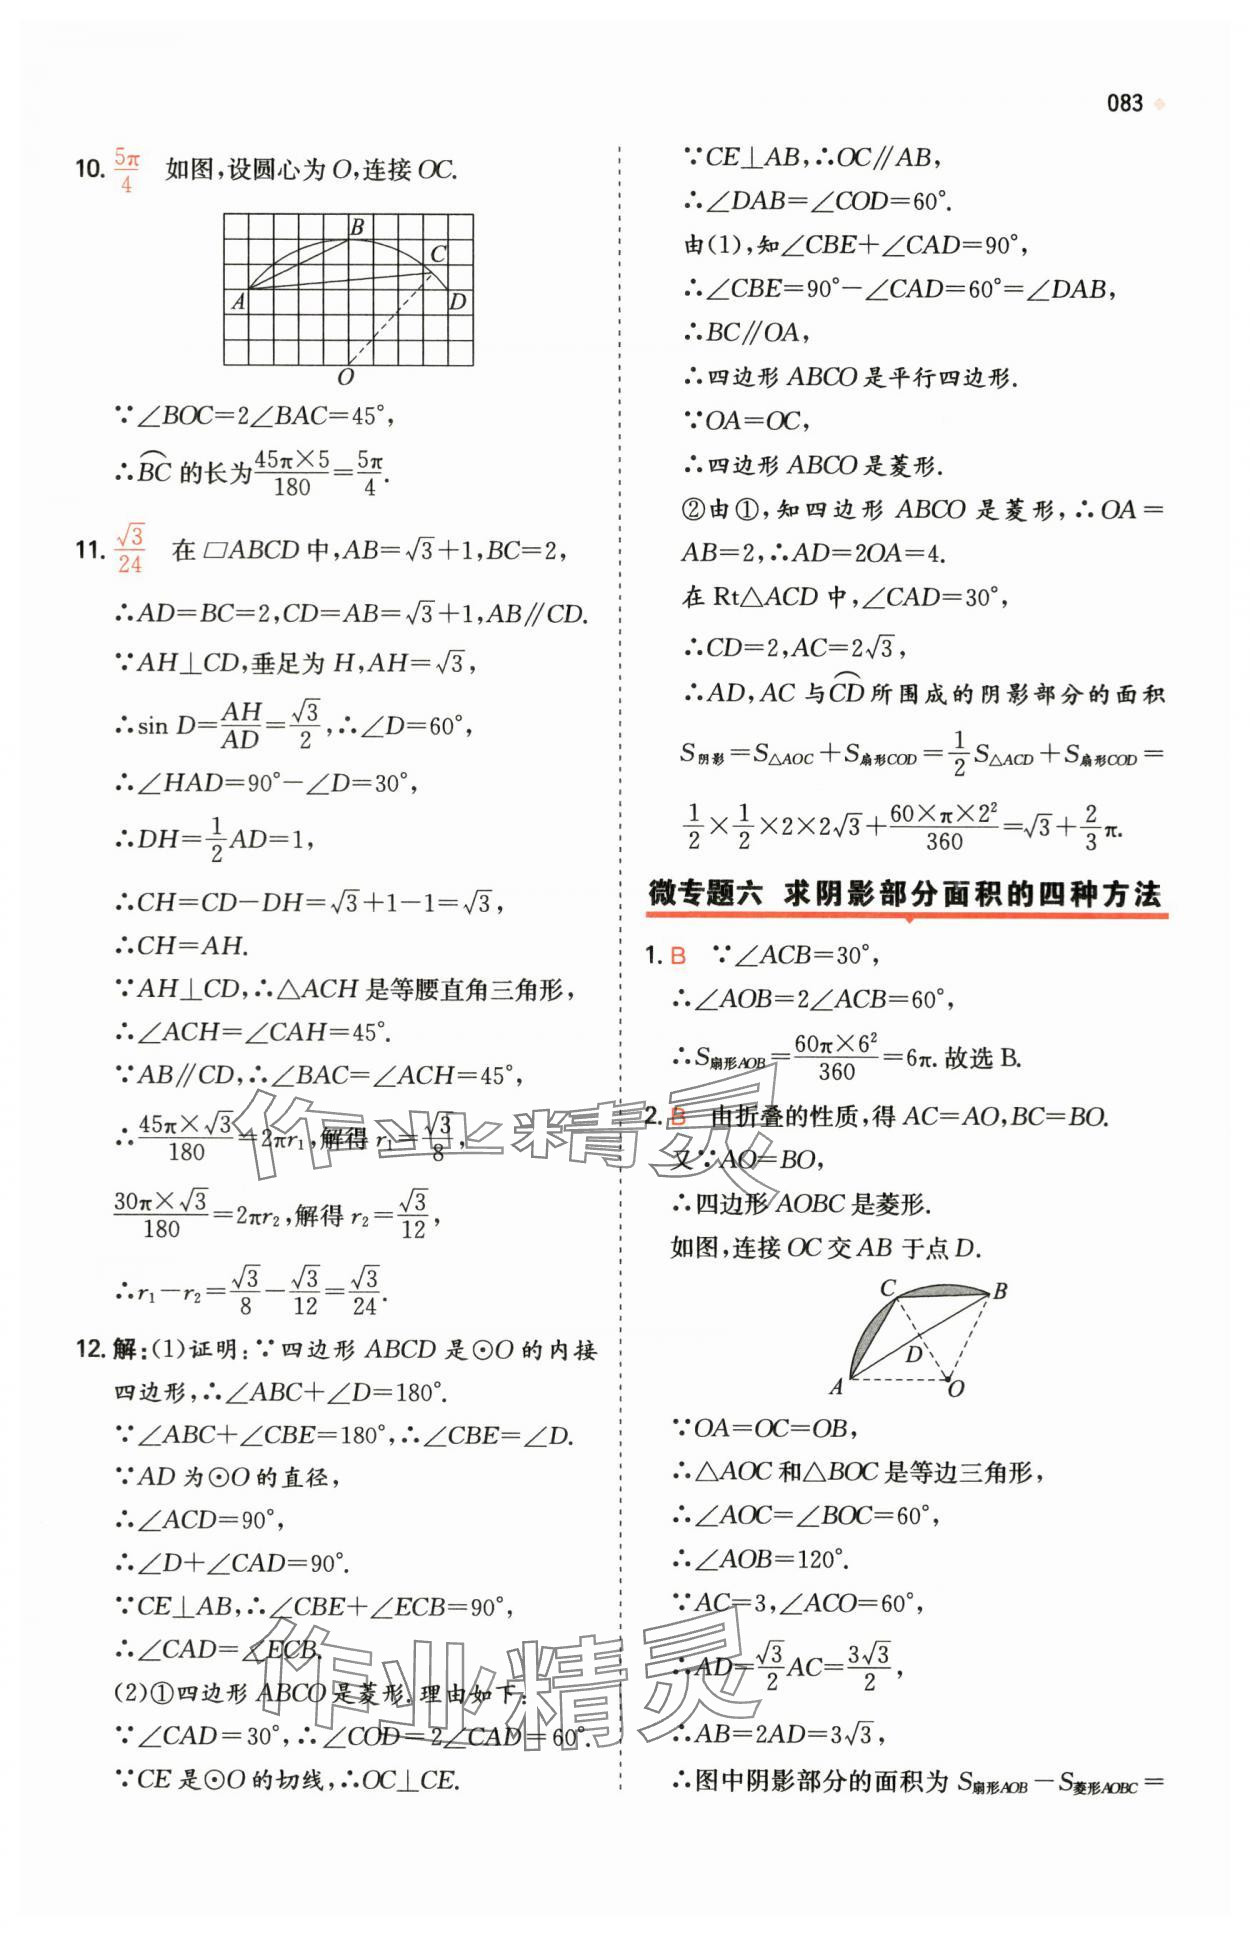 083
10. 5π/4 如图,设圆心为 O,连接 OC.
B
C
A
D
O
∵∠BOC=2∠BAC=45°,
∴⌒BC 的长为 45π×5/180=5π/4.
11. √3/24 在 □ABCD 中,AB=√3+1,BC=2,
∴AD=BC=2,CD=AB=√3+1,AB∥CD.
∵AH⊥CD,垂足为 H,AH=√3,
∴sin D=AH/AD=√3/2,∴∠D=60°,
∴∠HAD=90°−∠D=30°,
∴DH=1/2AD=1,
∴CH=CD−DH=√3+1−1=√3,
∴CH=AH.
∵AH⊥CD,∴△ACH 是等腰直角三角形,
∴∠ACH=∠CAH=45°.
∵AB∥CD,∴∠BAC=∠ACH=45°,
∴45π×√3/180=2πr₁,解得 r₁=√3/8,
30π×√3/180=2πr₂,解得 r₂=√3/12,
∴r₁−r₂=√3/8−√3/12=√3/24.
12. 解:(1)证明:∵四边形 ABCD 是⊙O 的内接
四边形,∴∠ABC+∠D=180°.
∵∠ABC+∠CBE=180°,∴∠CBE=∠D.
∵AD 为⊙O 的直径,
∴∠ACD=90°,
∴∠D+∠CAD=90°.
∵CE⊥AB,∴∠CBE+∠ECB=90°,
∴∠CAD=∠ECB.
(2)①四边形 ABCO 是菱形.理由如下:
∵∠CAD=30°,∴∠COD=2∠CAD=60°.
∵CE 是⊙O 的切线,∴OC⊥CE.
∵CE⊥AB,∴OC∥AB,
∴∠DAB=∠COD=60°.
由(1),知∠CBE+∠CAD=90°,
∴∠CBE=90°−∠CAD=60°=∠DAB,
∴BC∥OA,
∴四边形 ABCO 是平行四边形.
∵OA=OC,
∴四边形 ABCO 是菱形.
②由①,知四边形 ABCO 是菱形,∴OA=
AB=2,∴AD=2OA=4.
在 Rt△ACD 中,∠CAD=30°,
∴CD=2,AC=2√3,
∴AD,AC 与⌒CD 所围成的阴影部分的面积
S阴影=S△AOC+S扇形COD=1/2S△ACD+S扇形COD=
1/2×1/2×2×2√3+60×π×2²/360=√3+2/3π.
微专题六 求阴影部分面积的四种方法
1. B ∵∠ACB=30°,
∴∠AOB=2∠ACB=60°,
∴S扇形AOB=60π×6²/360=6π.故选 B.
2. B 由折叠的性质,得 AC=AO,BC=BO.
又∵AO=BO,
∴四边形 AOBC 是菱形.
如图,连接 OC 交 AB 于点 D.
C
B
D
A
O
∵OA=OC=OB,
∴△AOC 和△BOC 是等边三角形,
∴∠AOC=∠BOC=60°,
∴∠AOB=120°.
∵AC=3,∠ACO=60°,
∴AD=√3/2AC=3√3/2,
∴AB=2AD=3√3,
∴图中阴影部分的面积为 S扇形AOB−S菱形AOBC=
作业精灵
作业精灵